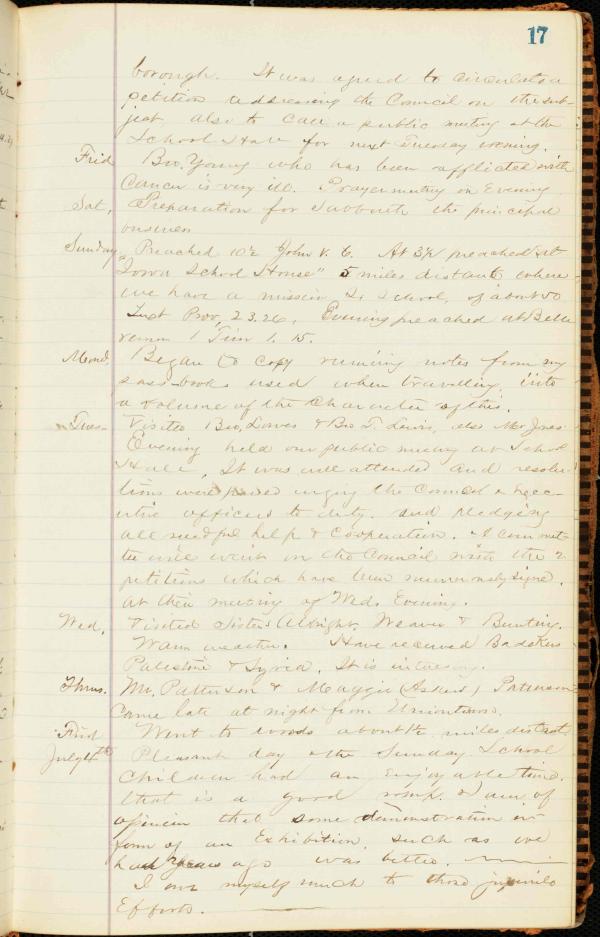 17
borough. It was agreed to circulate a
petition addressing the Council on the sub-
ject also to call a public meeting at the
School Hall for next Tuesday evening.
Frid Bro. Young who has been afflicted with
Cancer is very ill. Prayermeeting on Evening
Sat, Preparation for Sabbath the principal
business
Sunday Preached 10½ John V. 6. At 3½ preached at
School House" 5 miles distant where
we have a mission S. School, of about 50
Text Prov, 23.26. Evening preached at Belle
vernon 1 Tim 1. 15.
Mond. Began to copy running notes from my
pass-books used when travelling, into
a volume of the character of this.
Tues- Visited Bro, & Bro T. Lewis, also Mr Jones
Evening held our public meeting at School
Hall, It was well attended and resolu-
tions were passed urging the Council & Exec-
utive officers to duty. and pledging
all needful help & Cooperation. A Commit-
tee will wait on the Council with the 2
petitions which have been numerously signed.
at their meeting of Weds. Evening.
Wed, Visited Sisters Albright, Weaver & Bunting.
Warm weather. Have received Badekers
Palestine & Syria. It is interesting.
Thurs. Mr. Patterson & Maggie (Askins) Patterson
Came late at night from Uniontown.
Frid Went to woods about miles distant
July 4th Pleasant day & the Sunday School
Children had an enjoyable time.
that is a good romp. I am of
opinion that some demonstration in
form of an Exhibition, such as we
had years ago was better.
I owe myself much to those juvenile
Efforts.